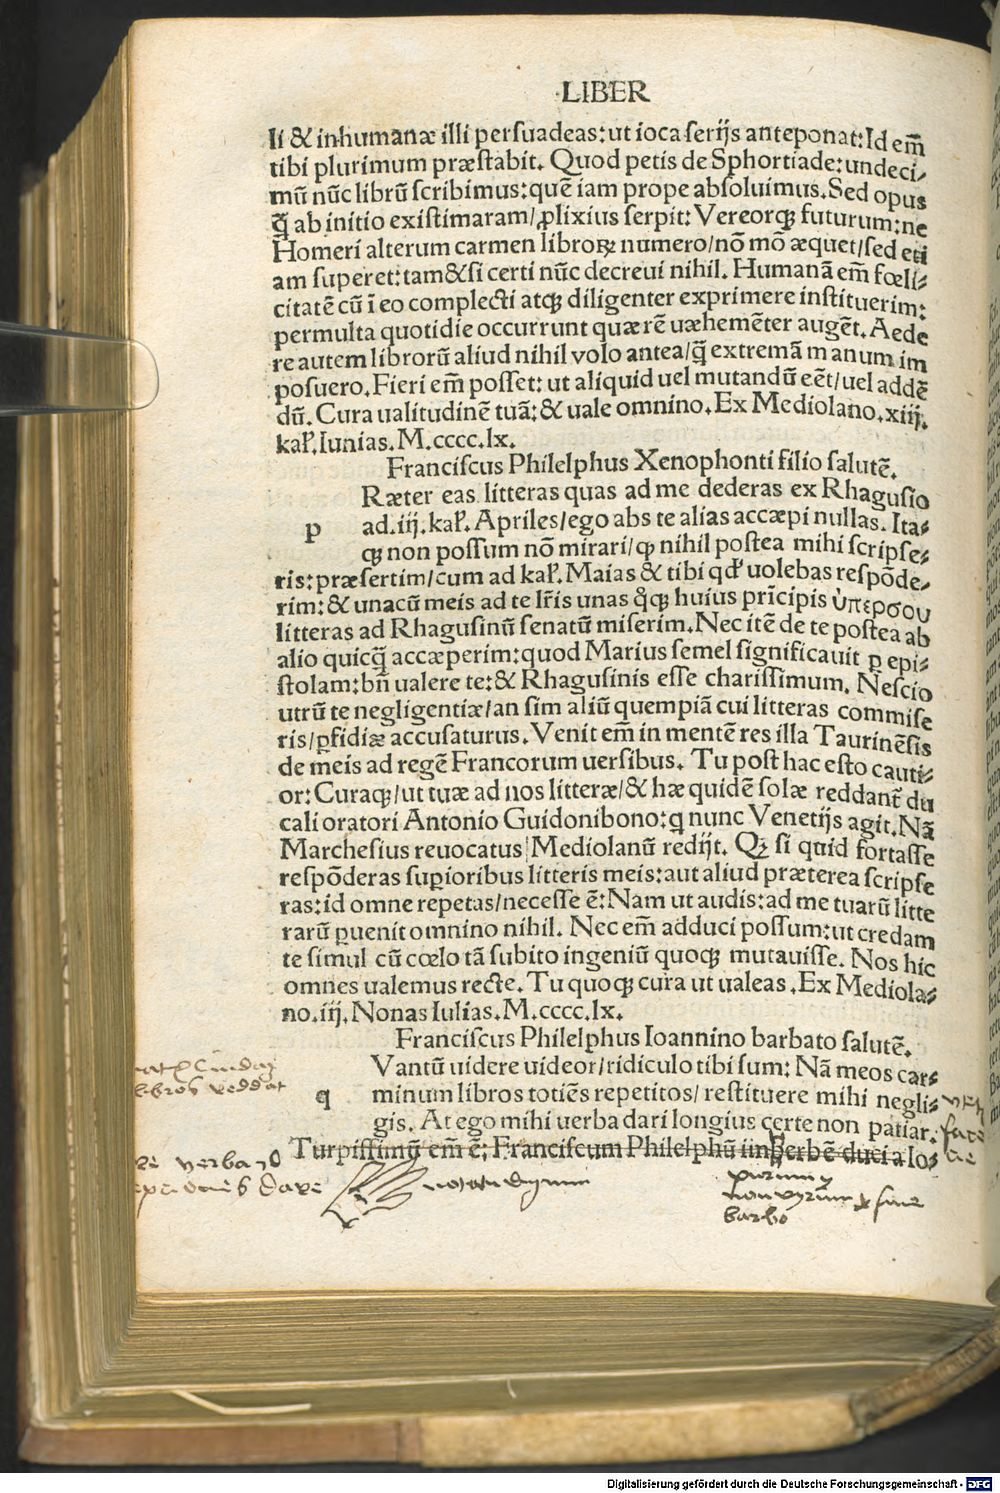 LIBER
li & inhumanæ illi persuadeas: ut ioca serijs anteponat: Id em̄
tibi plurimum præstabit. Quod petis de Sphortiade: undeci⸗
mū nūc librū scribimus: quē iam prope absoluimus. Sed opus
q̄ ab initio existimaram/ ꝓlixius serpit: Vereorqꝫ futurum: ne
Homeri alterum carmen libroꝝ numero/ nō mō æquet/ sed eti
am superet: tam & si certi nūc decreui nihil. Humanā em̄ fœli⸗
citatē cū ī eo complecti atqꝫ diligenter exprimere instituerim:
permulta quotidie occurrunt quæ rē uæhemēter augēt. Aede
re autem librorū aliud nihil volo antea/ q̄ extremā manum im
posuero. Fieri em̄ posset: ut aliquid uel mutandū eēt/ uel addē
dū. Cura ualitudinē tuā: & uale omnino. Ex Mediolano. xiij.
kał. Iunias. M.cccc.lx.
Franciscus Philelphus Xenophonti filio salutē.
p Ræter eas litteras quas ad me dederas ex Rhagusio
ad. iij. kał. Apriles/ ego abs te alias accæpi nullas. Ita⸗
qꝫ non possum nō mirari/ qꝙ nihil postea mihi scripse⸗
ris: præsertim/ cum ad kał. Maias & tibi qđ uolebas respōde⸗
rim: & unacū meis ad te lr̄is unas qͦqꝫ huius prīcipis ὑπερσου
litteras ad Rhagusinū senatū miserim. Nec itē de te postea ab
alio quicq̄ accæperim: quod Marius semel significauit ꝑ epi⸗
stolam: bn̄ ualere te: & Rhagusinis esse charissimum. Nescio
utrū te negligentiæ/ an sim aliū quempiā cui litteras commise
ris/ ꝑfidiæ accusaturus. Venit em̄ in mentē res illa Taurinēsis
de meis ad regē Francorum uersibus. Tu post hac esto cauti⸗
or: Curaqꝫ/ ut tuæ ad nos litteræ/ & hæ quidē solæ reddanť du
cali oratori Antonio Guidonibono: q nunc Venetijs agit. Nā
Marchesius reuocatus Mediolanū redijt. Qꝫ si quid fortasse
respōderas suꝑioribus litteris meis: aut aliud præterea scripse
ras: id omne repetas/ necesse ē: Nam ut audis: ad me tuarū litte
rarū ꝑuenit omnino nihil. Nec em̄ adduci possum: ut credam
te simul cū cœlo tā subito ingeniū quoqꝫ mutauisse. Nos hic
omnes ualemus recte. Tu quoqꝫ cura ut ualeas. Ex Mediola⸗
no. iij. Nonas Iulias. M.cccc.lx.
Franciscus Philelphus Ioannino barbato salutē.
q Vantū uidere uideor/ ridiculo tibi sum: Nā meos car⸗
minum libros totiēs repetitos/ restituere mihi negli⸗
gis. At ego mihi uerba dari longius certe non patiar.
Turpissimū em̄ ē: Franciscum Philelphū duci a Io⸗
libros reddat
verba
dare
notatu dignum
barbo
Digitalisierung gefördert durch die Deutsche Forschungsgemeinschaft - DFG